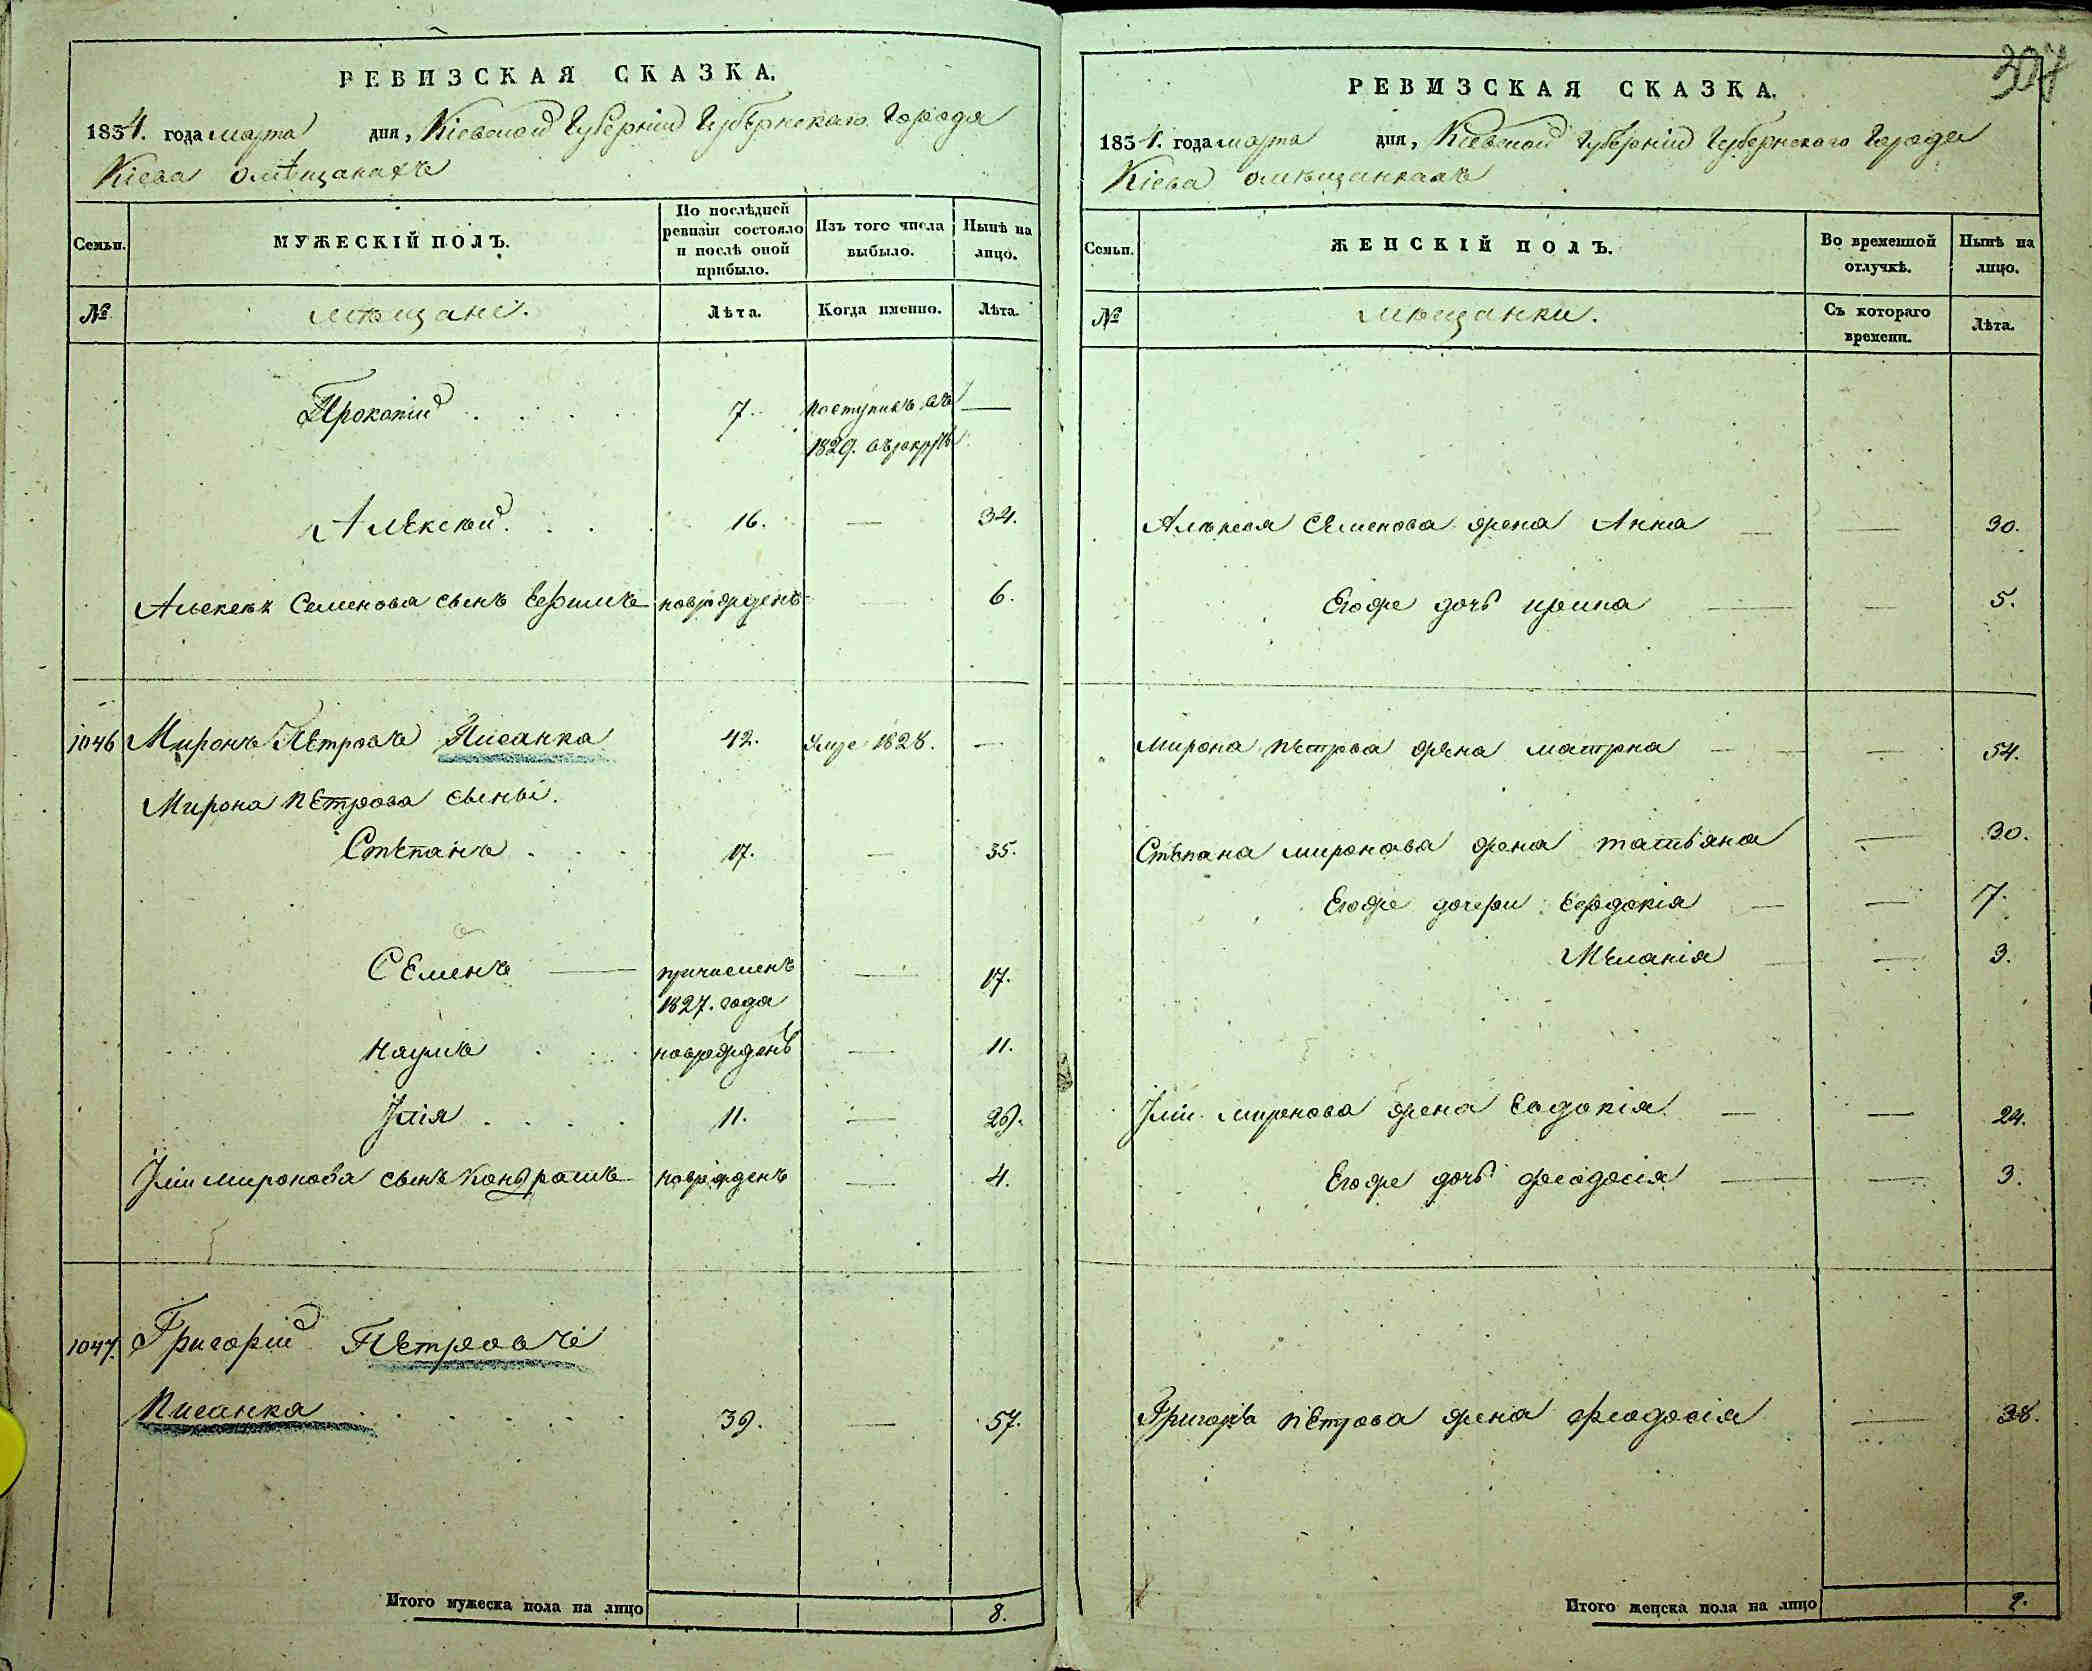 РЕВИЗСКАЯ СКАЗКА.
1834. года марта дня, Кіевской Губерніи Губернскаго Города
Кіева омѣщанахъ
Семьи.
МУЖЕСКІЙ ПОЛЪ.
По послѣдней ревизіи состояло и послѣ оной прибыло.
Изъ того числа выбыло.
Нынѣ на лицо.
№
мѣщане.
Лѣта.
Когда именно.
Лѣта.
Прокопій 7. поступилъ въ —
1829. въ рекруты
Алексѣй 16. — 34.
Алексѣя Семенова сынъ Ефимъ новорожденъ — 6.
1046 Миронъ Петровъ Писанка 42. умре 1828. —
Мирона Петрова сыны.
Степанъ 17. — 35.
Семенъ — причисленъ — 17.
1827. года
Наумъ новорожденъ — 11.
Ілія 11. — 29.
Іліи миронова сынъ Кондратъ новорожденъ — 4.
1047. Григорій Петровъ
Писанка 39. — 57.
Итого мужеска пола на лицо 8.
307
РЕВИЗСКАЯ СКАЗКА.
1834. года марта дня, Кіевской Губерніи Губернскаго Города
Кіева омѣщанкахъ
Семьи.
ЖЕНСКІЙ ПОЛЪ.
Во временной отлучкѣ.
Нынѣ на лицо.
№
мѣщанки.
Съ котораго времени.
Лѣта.
Алексѣя Семенова жена Анна — — 30.
Егоже дочь ирина — — 5.
Мирона петрова жена матрона — — 54.
Степана миронова жена татьяна — 30.
Егоже дочери Евдокія — — 7.
Меланія — — 3.
Іліи миронова жена Евдокія — — 24.
Егоже дочь феодосія — — 3.
Григорія петрова жена феодосія — 38.
Итого женска пола на лицо 9.